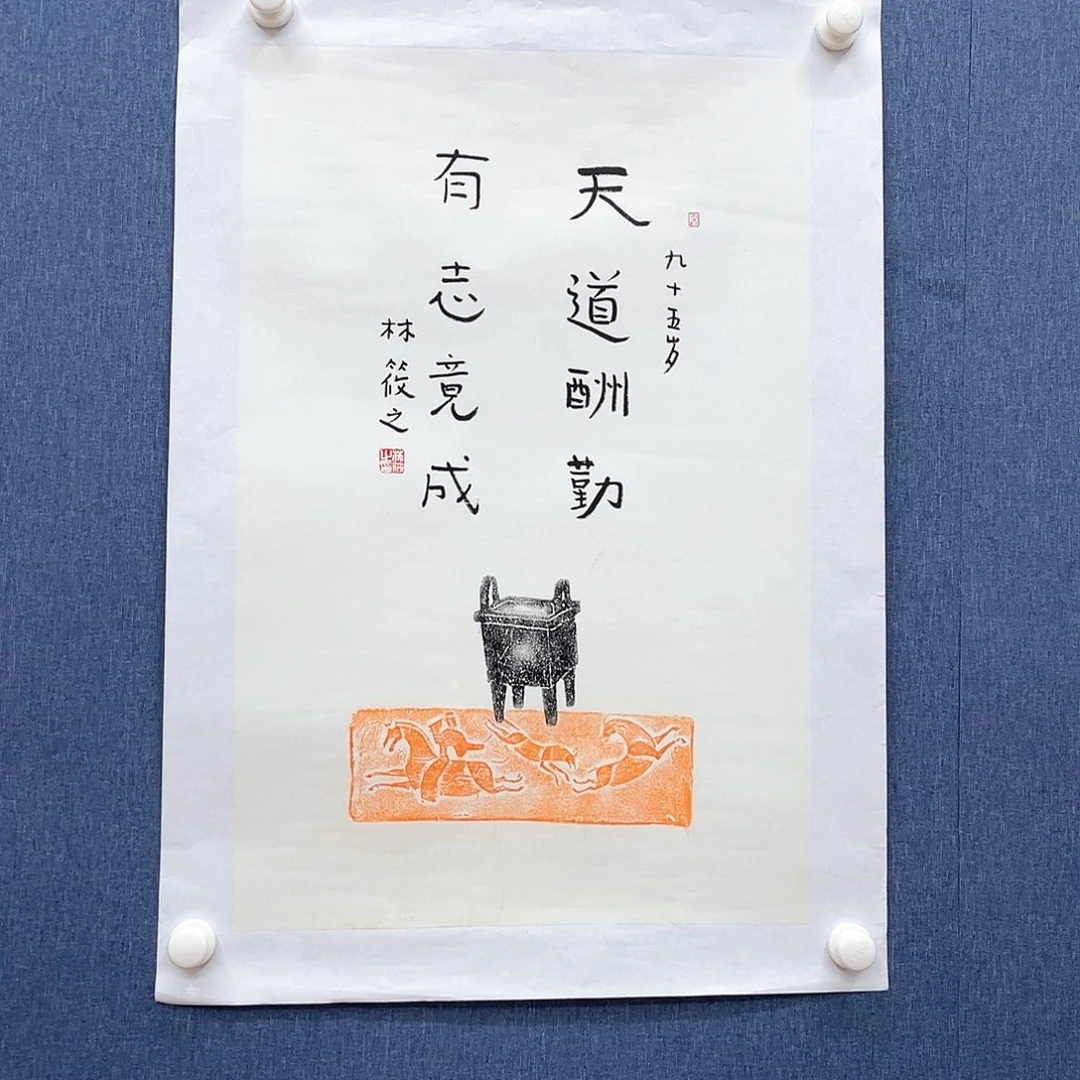 九十五岁
天道酬勤
有志竟成
林筱之